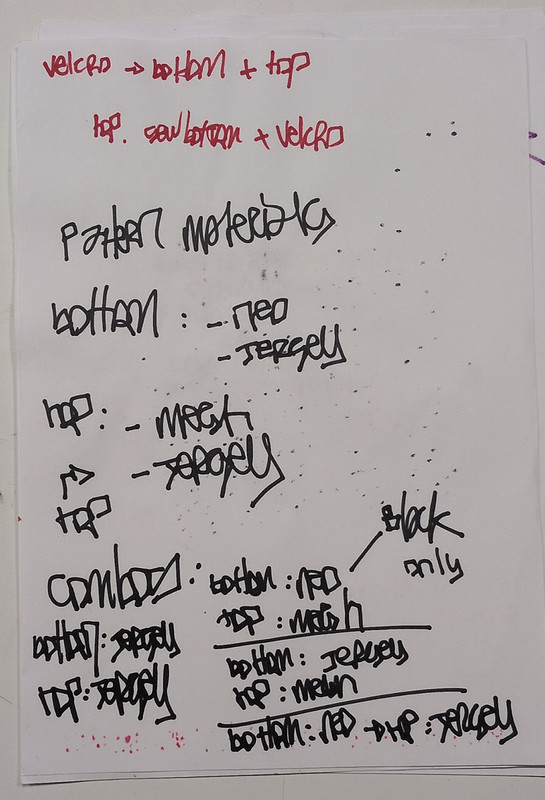 velcro → bottom + top
top. sew bottom + velcro
Pattern materials
bottom : - neo
- Jersey
top : - mesh
- Jersey
↱
top
Combos :
bottom : neo
top : mesh
Black
only
bottom : Jersey
top : Jersey
bottom : Jersey
top : mesh
bottom : neo → top : Jersey